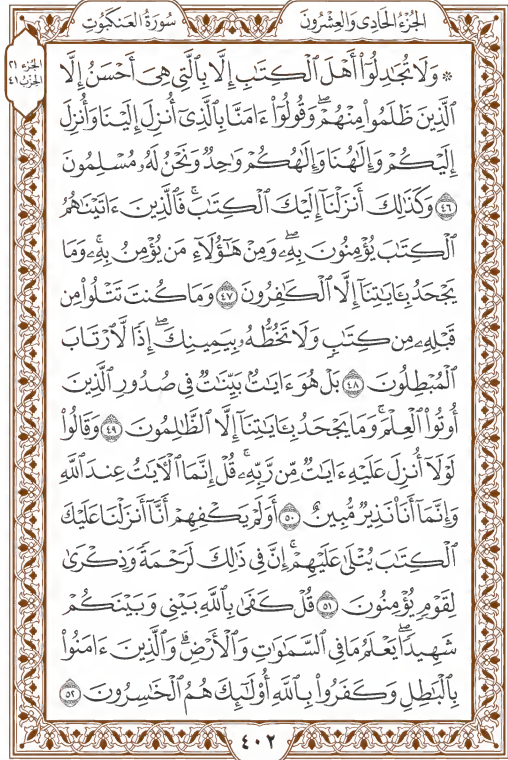 الجُزْءُ الحَادِي وَالعِشْرُونَ
سُورَةُ العَنكَبُوتِ
الجزء ٢١
الحزب ٤١
۞ وَلَا تُجَٰدِلُوٓاْ أَهْلَ ٱلْكِتَٰبِ إِلَّا بِٱلَّتِي هِيَ أَحْسَنُ إِلَّا
ٱلَّذِينَ ظَلَمُواْ مِنْهُمْۖ وَقُولُوٓاْ ءَامَنَّا بِٱلَّذِيٓ أُنزِلَ إِلَيْنَا وَأُنزِلَ
إِلَيْكُمْ وَإِلَٰهُنَا وَإِلَٰهُكُمْ وَٰحِدٌ وَنَحْنُ لَهُۥ مُسْلِمُونَ
٤٦ وَكَذَٰلِكَ أَنزَلْنَآ إِلَيْكَ ٱلْكِتَٰبَۚ فَٱلَّذِينَ ءَاتَيْنَٰهُمُ
ٱلْكِتَٰبَ يُؤْمِنُونَ بِهِۦۖ وَمِنْ هَٰٓؤُلَآءِ مَن يُؤْمِنُ بِهِۦۚ وَمَا
يَجْحَدُ بِـَٔايَٰتِنَآ إِلَّا ٱلْكَٰفِرُونَ ٤٧ وَمَا كُنتَ تَتْلُواْ مِن
قَبْلِهِۦ مِن كِتَٰبٍ وَلَا تَخُطُّهُۥ بِيَمِينِكَۖ إِذًا لَّٱرْتَابَ
ٱلْمُبْطِلُونَ ٤٨ بَلْ هُوَ ءَايَٰتٌۢ بَيِّنَٰتٌ فِي صُدُورِ ٱلَّذِينَ
أُوتُواْ ٱلْعِلْمَۚ وَمَا يَجْحَدُ بِـَٔايَٰتِنَآ إِلَّا ٱلظَّٰلِمُونَ ٤٩ وَقَالُواْ
لَوْلَآ أُنزِلَ عَلَيْهِ ءَايَٰتٌ مِّن رَّبِّهِۦۚ قُلْ إِنَّمَا ٱلْأٓيَٰتُ عِندَ ٱللَّهِ
وَإِنَّمَآ أَنَا۠ نَذِيرٌ مُّبِينٌ ٥٠ أَوَلَمْ يَكْفِهِمْ أَنَّآ أَنزَلْنَا عَلَيْكَ
ٱلْكِتَٰبَ يُتْلَىٰ عَلَيْهِمْۚ إِنَّ فِي ذَٰلِكَ لَرَحْمَةً وَذِكْرَىٰ
لِقَوْمٍ يُؤْمِنُونَ ٥١ قُلْ كَفَىٰ بِٱللَّهِ بَيْنِي وَبَيْنَكُمْ
شَهِيدًاۖ يَعْلَمُ مَا فِي ٱلسَّمَٰوَٰتِ وَٱلْأَرْضِۗ وَٱلَّذِينَ ءَامَنُواْ
بِٱلْبَٰطِلِ وَكَفَرُواْ بِٱللَّهِ أُوْلَٰٓئِكَ هُمُ ٱلْخَٰسِرُونَ ٥٢
٤٠٢